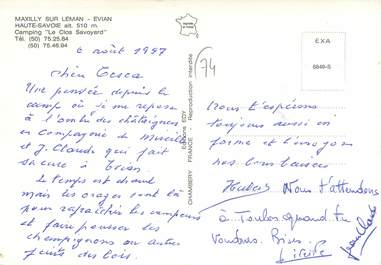 MAXILLY SUR LEMAN - EVIAN
HAUTE-SAVOIE alt. 510 m.
Camping "Le Clos Savoyard"
Tél. (50) 75.25.84
(50) 75.46.94
6 août 1997
Une pensée depuis le
camp où je me repose
à l'ombre des châtaigniers
en Compagnie de
et J. Claude qui fait
sa cure à Evian.
le temps est chaud
mais les orages sont là
pour rafraîchir les campeurs
et faire pousser les
champignons ou autres
fruits des bois.
CHAMBERY FRANCE
Editions EDY
Reproduction interdite
74
EXA
6849-S
Nous t'espérons
toujours aussi en
forme et t'envoyons
nos bons baisers
Nous t'attendons
à Toulon quand tu
voudras. Bises.
Jean Claude